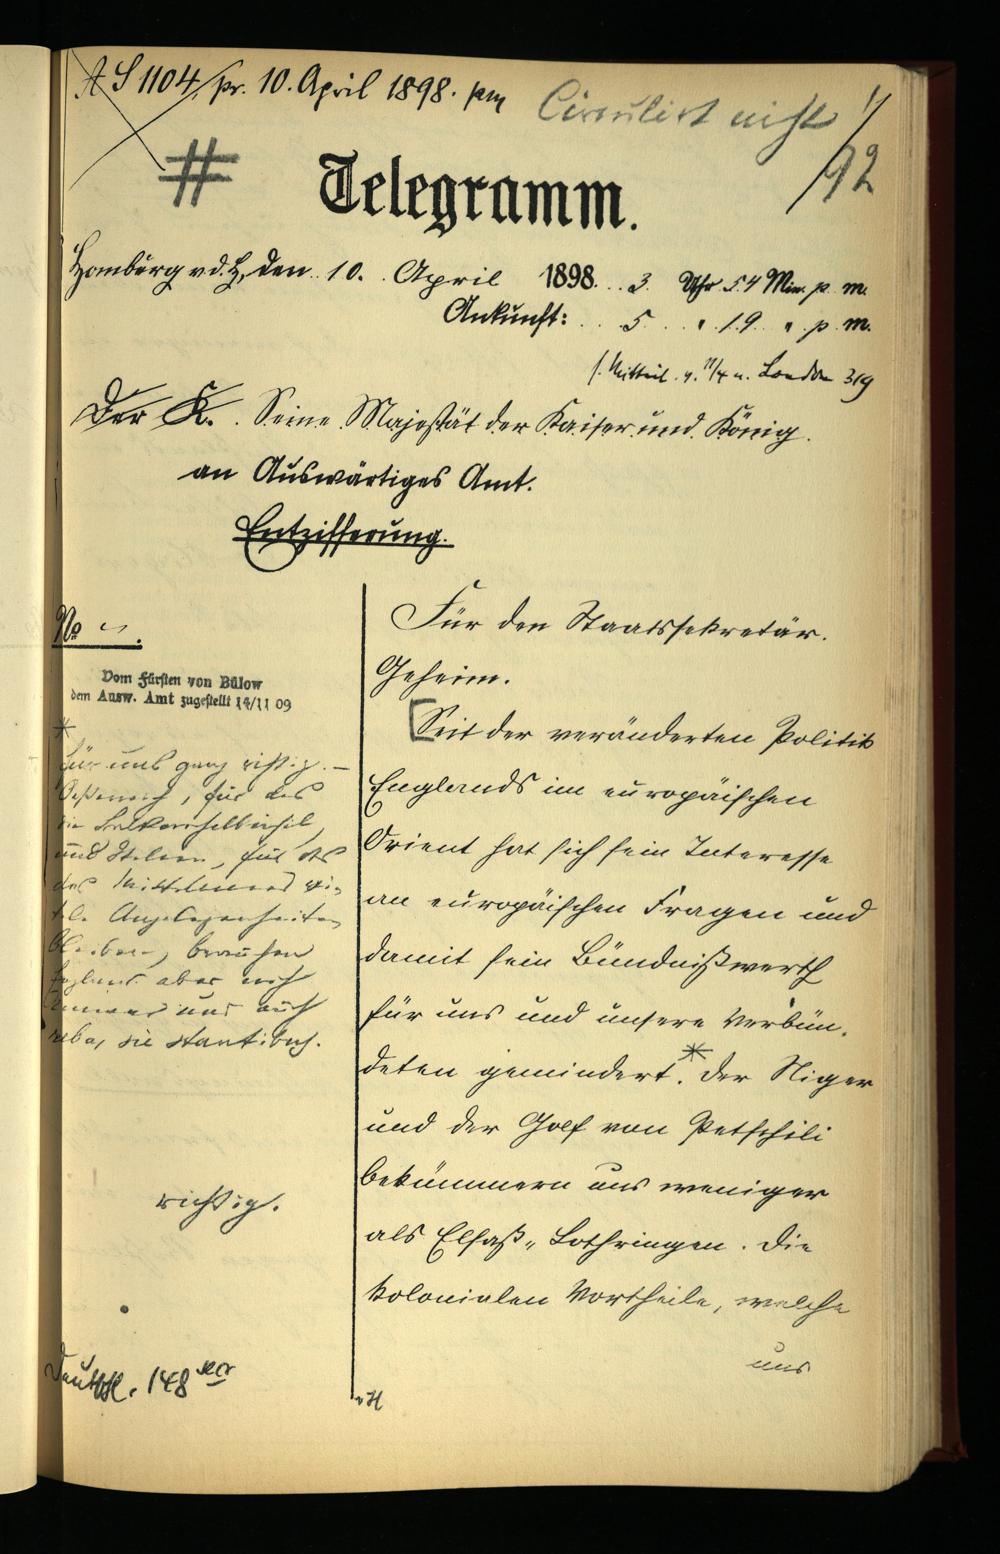 A S 1104, pr. 10. April 1898. pm
Circulirt nicht
92
#
Telegramm.
Homburg v.d.H., den 10. April 1898. 3 Uhr 54 Min. p. m.
Ankunft: 5 " 19 " p. m.
s. Mitteil. v. 11/4 n. London 319
Der K. Seine Majestät der Kaiser und König.
an Auswärtiges Amt.
Entzifferung.
No
Vom Fürsten von Bülow
dem Ausw. Amt zugestellt 14/11 09
*
Für uns ganz richtig. —
Oesterreich, für das
die Balkanhalbinsel,
und Italien, für das
des Mittelmeeres vi-
tale Angelegenheiten
bleiben, brauchen
England aber noch
immer und auch
rebus sic stantibus.
richtig.
Deutschl. 148 secr
Für den Staatssekretär.
Geheim.
[Seit der veränderten Politik
Englands im europäischen
Orient hat sich sein Interesse
an europäischen Fragen und
damit sein Bündnißwerth
für uns und unsere Verbün-
deten gemindert.* Der Niger
und der Golf von Petschili
bekümmern uns weniger
als Elsaß-Lothringen. Die
kolonialen Vortheile, welche
uns